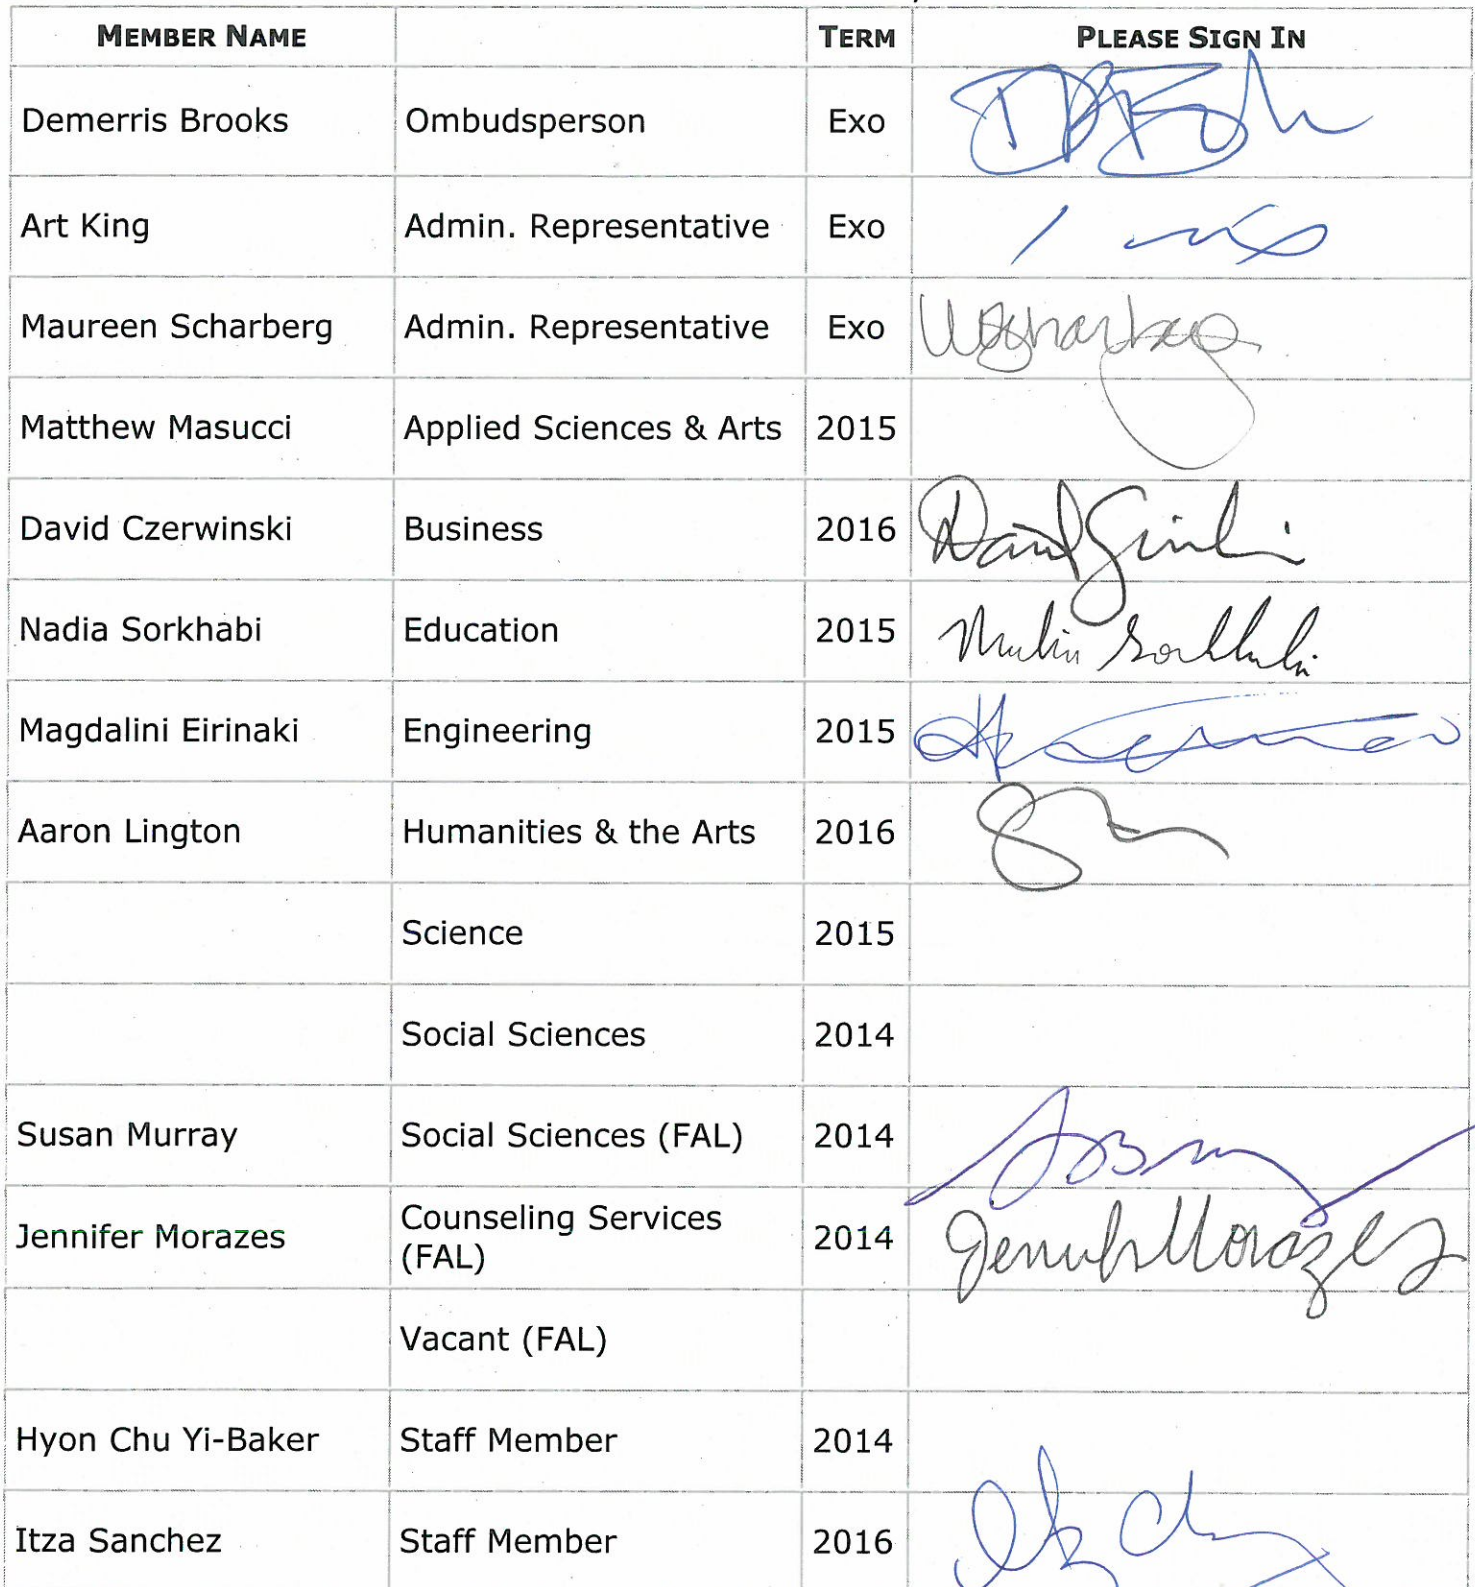 MEMBER NAME TERM PLEASE SIGN IN
Demerris Brooks Ombudsperson Exo
Art King Admin. Representative Exo
Maureen Scharberg Admin. Representative Exo
Matthew Masucci Applied Sciences & Arts 2015
David Czerwinski Business 2016
Nadia Sorkhabi Education 2015
Magdalini Eirinaki Engineering 2015
Aaron Lington Humanities & the Arts 2016
Science 2015
Social Sciences 2014
Susan Murray Social Sciences (FAL) 2014
Jennifer Morazes Counseling Services 2014 Jennifer Morazes
(FAL)
Vacant (FAL)
Hyon Chu Yi-Baker Staff Member 2014
Itza Sanchez Staff Member 2016